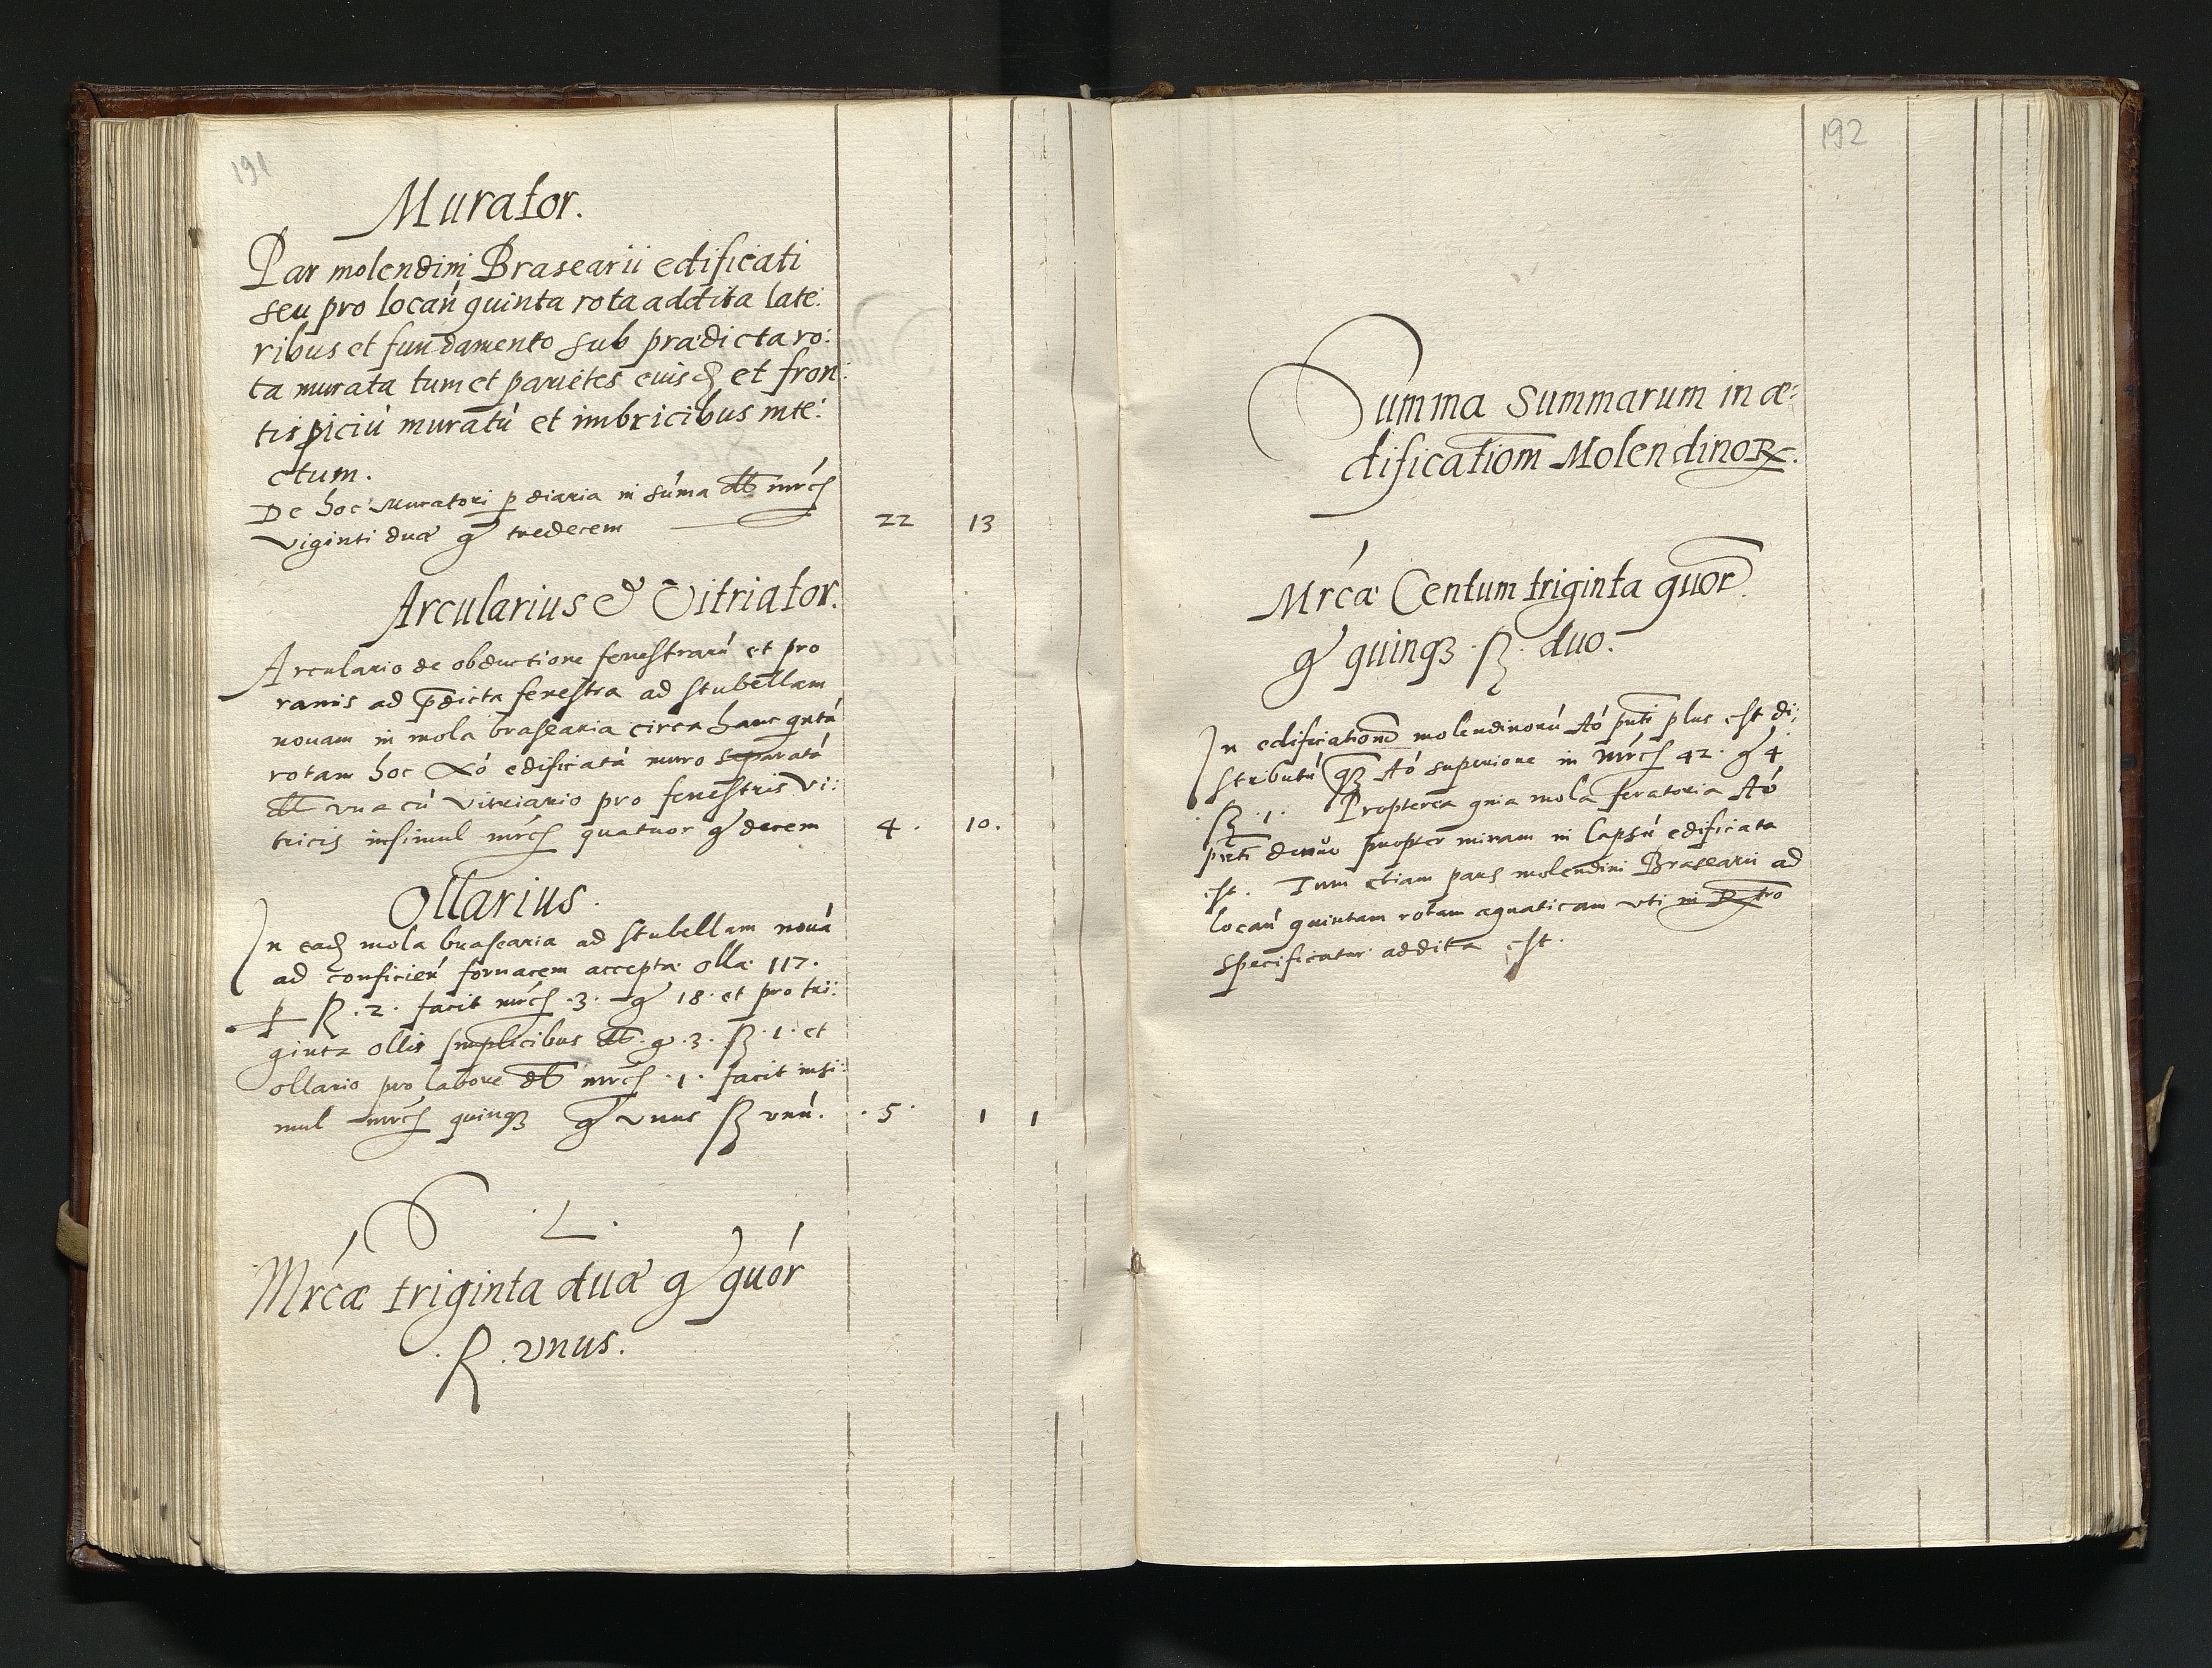 191
Murator.
Par molendini Brasearii edificati
seu pro locań quinta rota addita late:
ribus et fundamento sub prædicta ro:
ta murata tum et parietes eiusđ et fron:
tispiciú muratú et imbricibus inte:
ctum.
De hoc Muratori p diaria in súma dt mrć
viginti duæ g tredecem 22 13
Arcularius & Vitriator.
Arculario de obductione fenestrarú et pro
ramis ad pdicta fenestra ad stubellam
nouam in mola brasearia circa hanc qntá
rotam hoc Aó edificatá muro separatá
dt vna cú vitriario pro fenestris vi:
tricis insimul mrć quatuor g decem 4. 10.
Ollarius.
In eađ mola brasearia ad stubellam nouá
ad conficień fornacem acceptæ ollæ 117.
p R .2. facit mrć .3. g 18. et pro tri:
ginta ollis simplicibus dt. g .3. ß .1. et
ollario pro labore dt mrć .1. facit insi:
mul mrć quinqȝ g vnus ß vnú. .5. 1 1
.L.
Mrćæ triginta duæ g quór
.R. vnus.
192
Summa Summarum in æ:
dificatiom Molendinoꝝ.
Mrćæ Centum triginta quor
g quinqȝ .ß. duo.
In edificatione molendinorú Aó pnti plus est di:
stributú qȝ Aó superiore in mrć 42. g 4
.ß .1. Propterea quia mola serratoria Aó
pnti denuo propter ruinam in lapsú edificata
est. Tum etiam pars molendini Brasearii ad
locań quintam rotam aquaticam vti in Rtro
specificatur addita est.